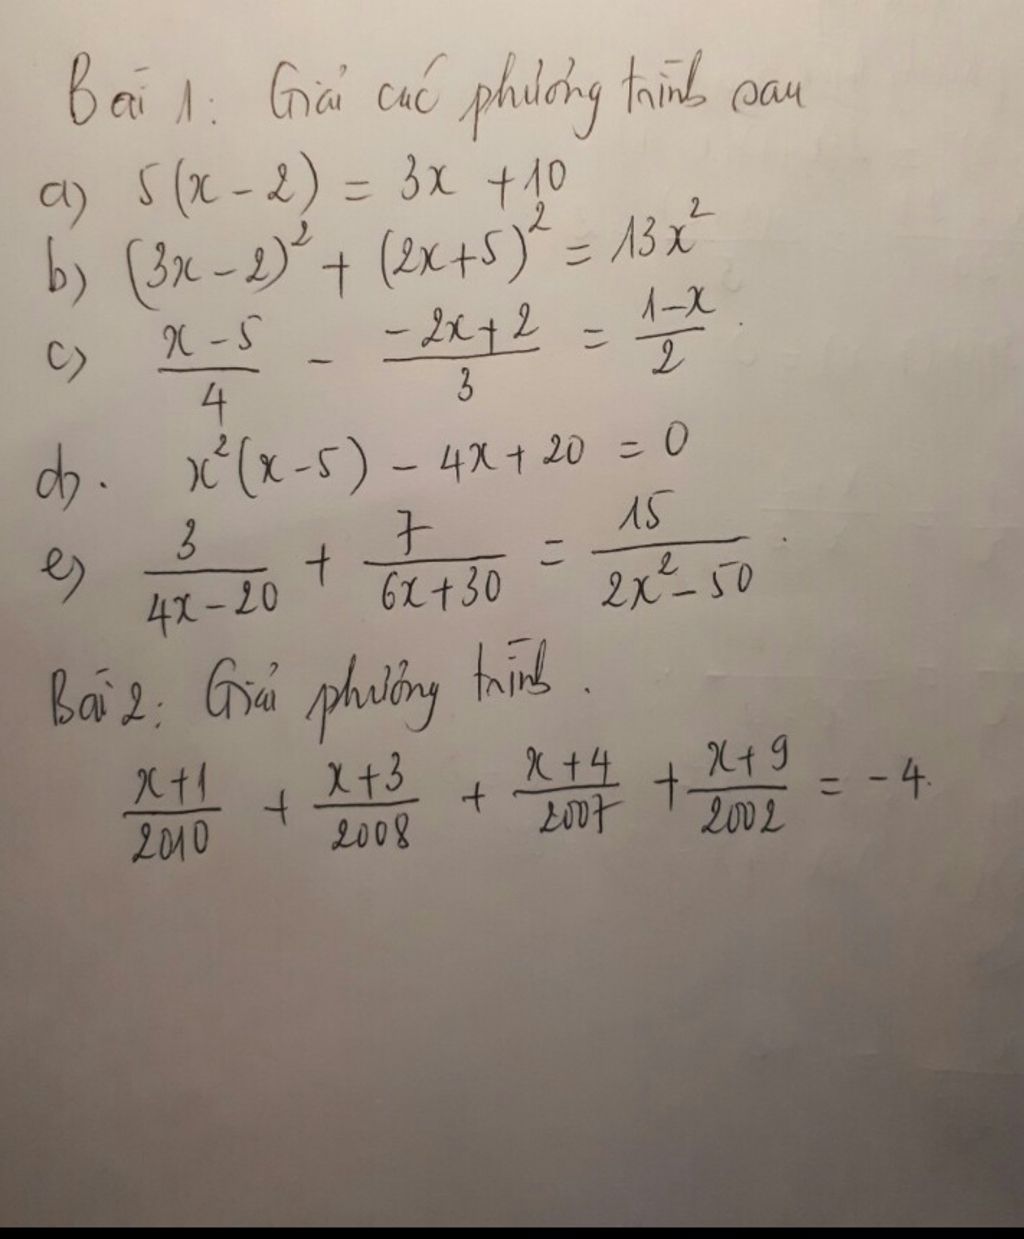 Bài 1: Giải các phương trình sau
a) 5(x - 2) = 3x + 10
b) (3x - 2)² + (2x + 5)² = 13x²
c) \frac{x - 5}{4} - \frac{-2x + 2}{3} = \frac{1 - x}{2}.
d). x²(x - 5) - 4x + 20 = 0
e) \frac{3}{4x - 20} + \frac{7}{6x + 30} = \frac{15}{2x² - 50}.
Bài 2: Giải phương trình.
\frac{x + 1}{2010} + \frac{x + 3}{2008} + \frac{x + 4}{2007} + \frac{x + 9}{2002} = -4.